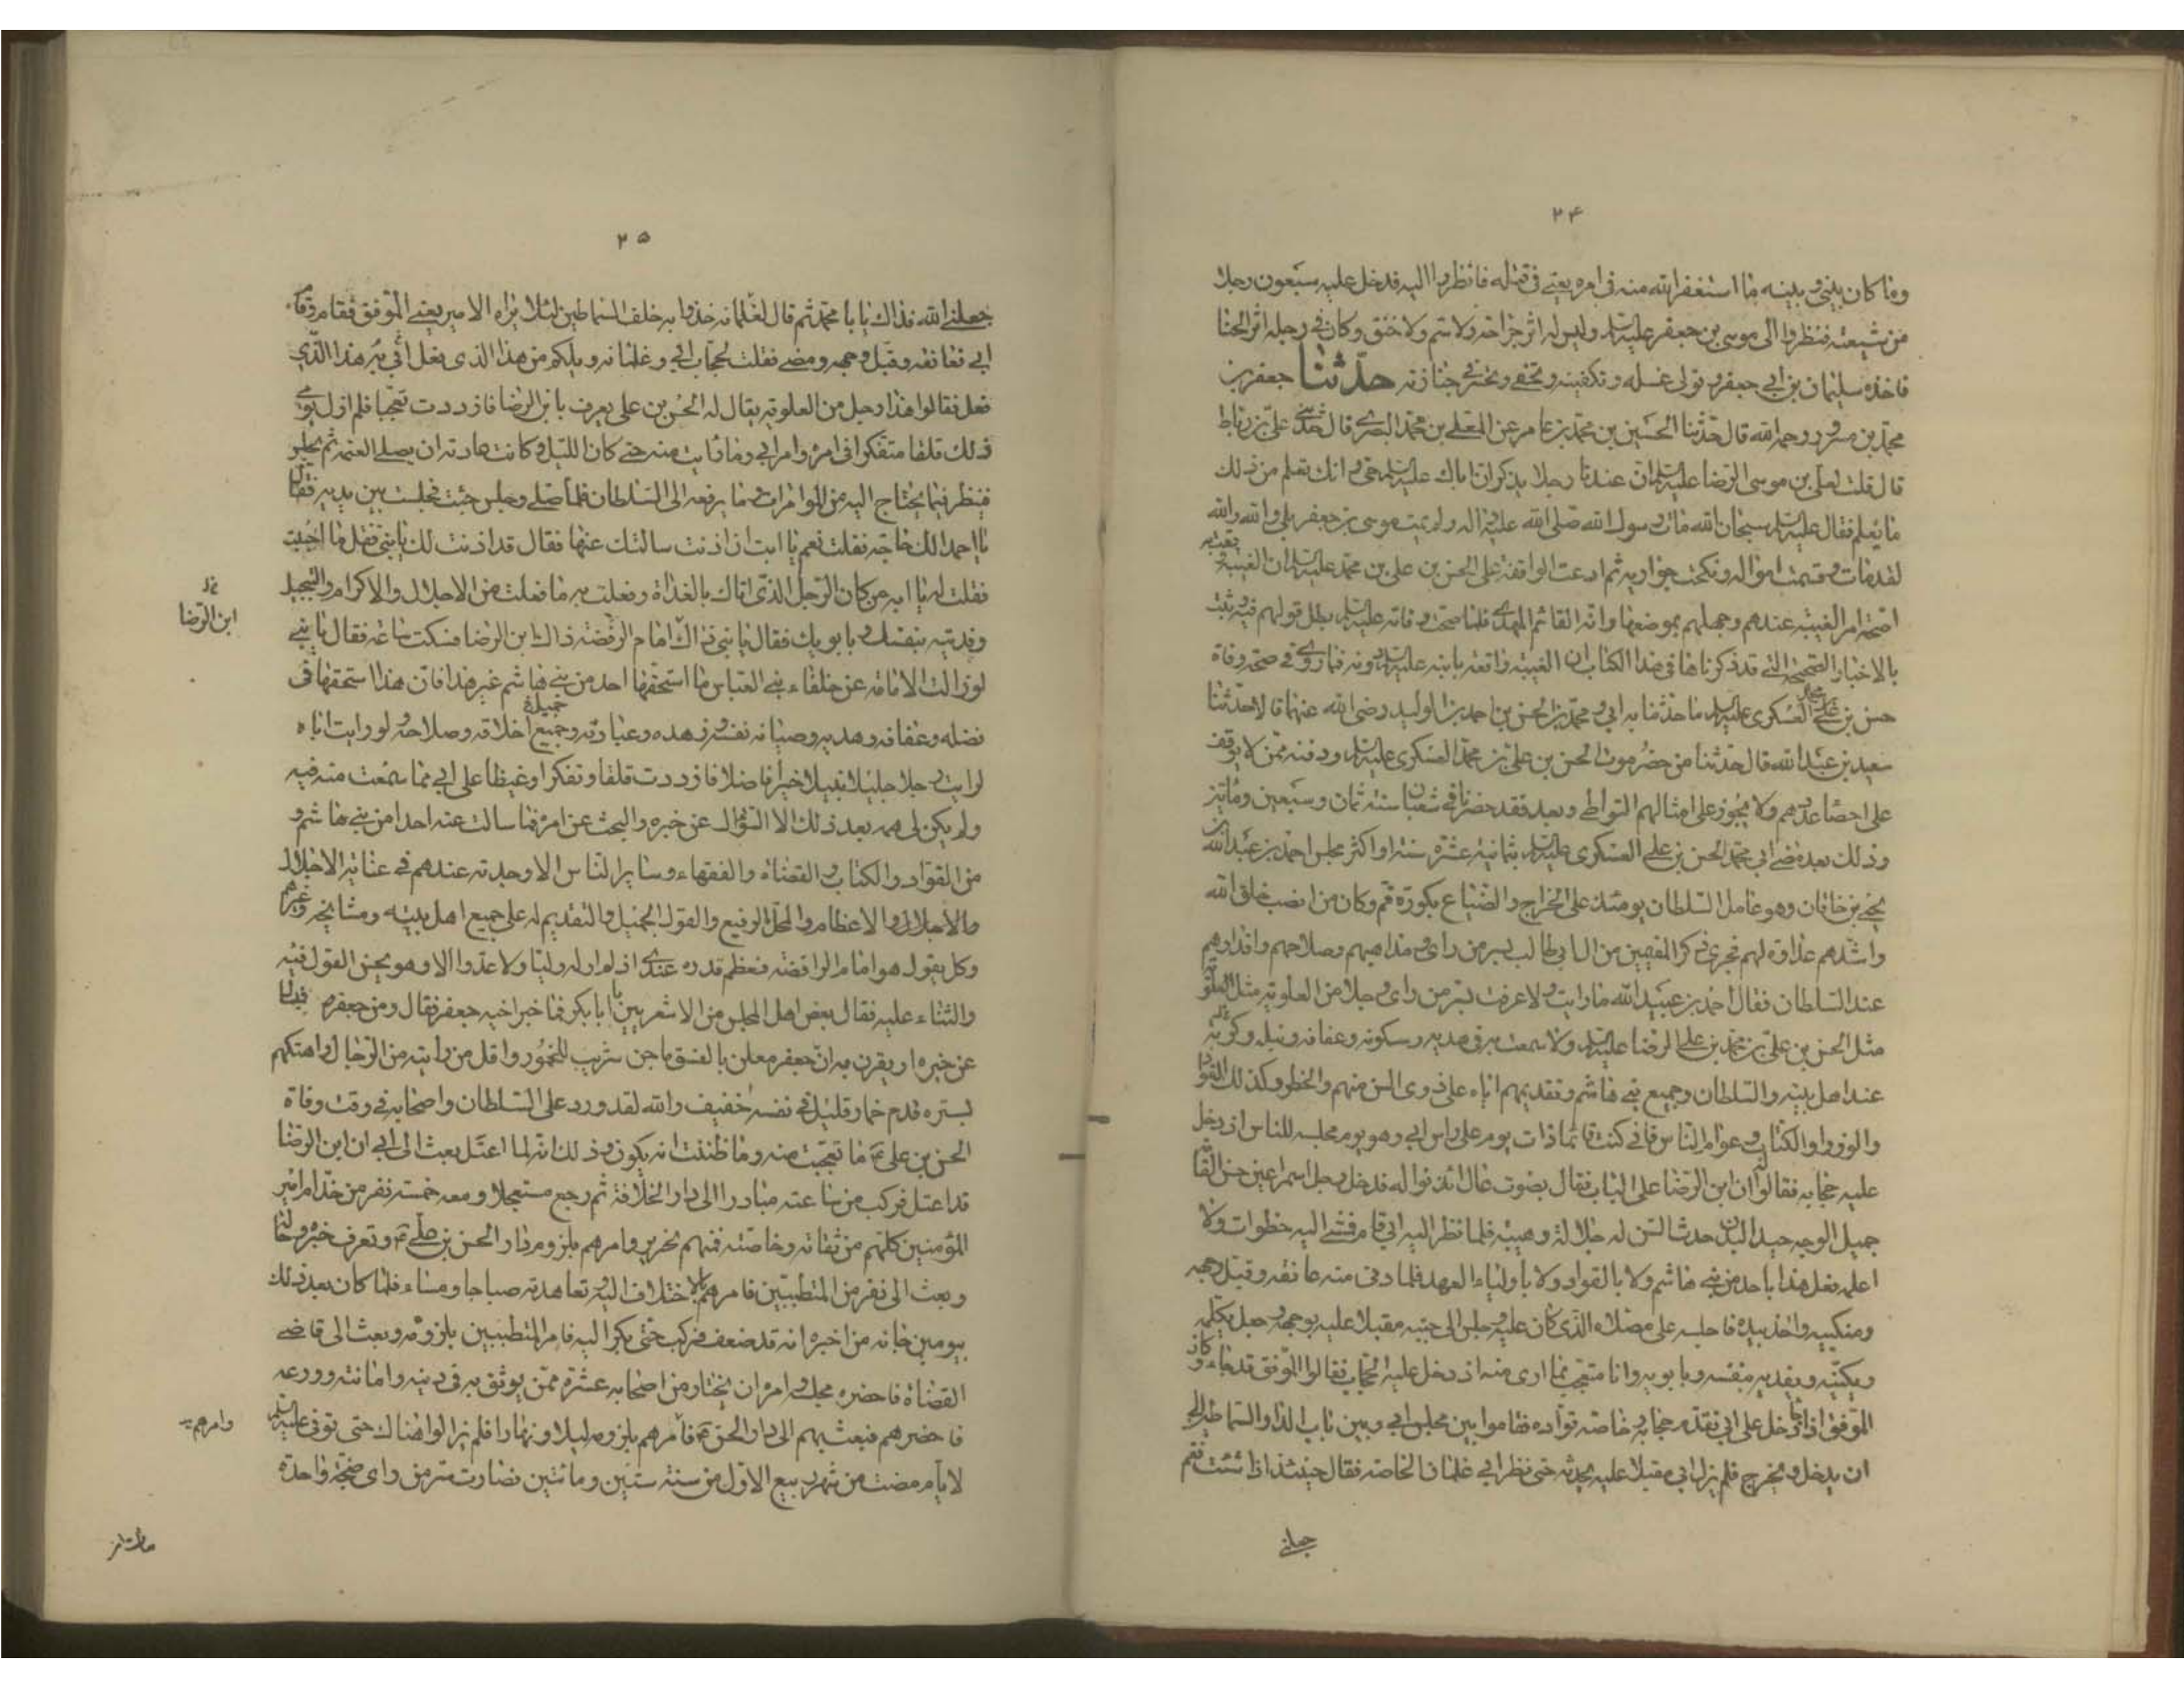 ٢۴
وما كان بيني وبينه ما استغفر الله منه في امره يعني في قتله فانظروا اليه فدخل عليه سبعون رجلا
من شيعته فنظروا الى موسى بن جعفر عليه السلم وليس له اثر جراحة ولا سم ولا خنق وكان في رجله اثر الحنا
فاخذه سليمان بن ابي جعفر وتولى غسله وتكفينه وتحفى وتحسر في جنازته حدثنا جعفر بن
محمد بن مسرور رحمه الله قال حدثنا الحسين بن محمد بن عامر عن المعلى بن محمد البصري قال حدثني علي بن رباط
قال قلت لعلي بن موسى الرضا عليه السلم ان عندنا رجلا يذكر ان اباك عليه السلم حي وانك تعلم من ذلك
ما يعلم فقال عليه السلم سبحان الله مات رسول الله صلى الله عليه واله ولم يمت موسى بن جعفر بلى والله والله
لقد مات وقسمت امواله ونكحت جواريه ثم ادعت الواقفة على الحسن بن علي بن محمد عليه السلم ان الغيبة وقعت به
لصحة امر الغيبة عندهم وجهلهم بموضعها وانه القائم المهدي فلما صحت وفاته عليه السلم بطل قولهم فيه وثبت
بالاخبار الصحيحة التي قد ذكرناها في هذا الكتاب ان الغيبة واقعة بابنه عليه السلم دونه فما روي في صحة وفاة
حسن بن علي بن محمد العسكري عليه السلم ما حدثنا به ابي ومحمد بن الحسن بن احمد بن الوليد رضي الله عنهما قالا حدثنا
سعيد بن عبد الله قال حدثنا من حضر موت الحسن بن علي بن محمد العسكري عليه السلم ودفنه ممن لا يوقف
على احصاء عددهم ولا يجوز على امثالهم التواطى وبعد فقد حضرنا في شعبان سنة ثمان وسبعين ومأتين
وذلك بعد مضي ابي محمد الحسن بن علي العسكري عليه السلم بثمانية عشرة سنة او اكثر مجلس احمد بن عبد الله بن
يحيى بن خاقان وهو عامل السلطان يومئذ على الخراج والضياع بكورة قم وكان من انصب خلق الله
واشدهم عداوة لهم فجرى ذكر المقيمين من ال ابي طالب بسر من راى ومذاهبهم وصلاحهم واقدارهم
عند السلطان فقال احمد بن عبيد الله ما رايت ولا عرفت بسر من راى رجلا من العلوية
مثل الحسن بن علي بن محمد بن علي الرضا عليه السلم ولا سمعت به في هديه وسكونه وعفافه ونبله وكرمه
عند اهل بيته والسلطان وجميع بني هاشم وتقديمهم اياه على ذوي السن منهم والخطر وكذلك القواد
والوزراء والكتاب وعوام الناس فاني كنت قائما ذات يوم على راس ابي وهو يوم مجلسه للناس اذ دخل
عليه حجابه فقالوا له ان ابن الرضا على الباب فقال بصوت عال ائذنوا له فدخل رجل اسمر اعين حسن القامة
جميل الوجه جيد البدن حدث السن له جلالة وهيبة فلما نظر اليه ابي قام فمشى اليه خطوات ولا
اعلمه فعل هذا باحد من بني هاشم ولا بالقواد ولا باولياء العهد فلما دنى منه عانقه وقبل وجهه
ومنكبيه واخذ بيده فاجلسه على مصلاه الذي كان عليه وجلس الى جنبه مقبلا عليه بوجهه وجعل يكلمه
ويكنيه ويفديه بنفسه وبابويه وانا متعجب مما ارى منه اذ دخل عليه الحجاب فقالوا الموفق قد جاء وكان
الموفق اذا دخل على ابي تقدم حجابه وخاصة قواده فقاموا بين مجلس ابي وبين باب الدار السماطين الى
ان يدخل ويخرج فلم يزل ابي مقبلا عليه يحدثه حتى نظر ابي غلمان الخاصة فقال حينئذ اذا شئت فقم
جعلني
٢۵
جعلني الله فداك يا با محمد ثم قال لغلمانه خذوا به خلف السماطين لئلا يراه الامير يعني الموفق فقام وقام
ابي فعانقه وقبل وجهه ومضى فقلت لحجاب ابي وغلمانه ويلكم من هذا الذي فعل ابي به هذا الذي
فعل فقالوا هذا رجل من العلوية يقال له الحسن بن علي يعرف بابن الرضا فازددت تعجبا فلم ازل يومي
ذلك قلقا متفكرا في امره وامر ابي وما رايت منه حتى كان الليل وكانت عادته ان يصلي العتمة ثم يجلس
فينظر فيما يحتاج اليه من الموامرات وما يرفعه الى السلطان فلما صلى وجلس جئت فجلست بين يديه فقال
يا احمد الك حاجة فقلت نعم يا ابت ان اذنت سالتك عنها فقال قد اذنت لك يا بني فقل ما احببت
فقلت له يا ابه من كان الرجل الذي اتاك بالغداة وفعلت به ما فعلت من الاجلال والاكرام والتبجيل
وفديته بنفسك وبابويك فقال يا بني ذاك امام الرفضة ذاك ابن الرضا فسكت ساعة فقال يا بني
لو زالت الامامة عن خلفاء بني العباس ما استحقها احد من بني هاشم غير هذا فان هذا استحقها في
فضله وعفافه وهديه وصيانة نفسه وزهده وعبادته وجميع جميلة اخلاقه وصلاحه ولو رايت اباه
لرايت رجلا جليلا نبيلا خيرا فاضلا فازددت قلقا وتفكرا وغيظا على ابي مما سمعت منه فيه
ولم يكن لي همه بعد ذلك الا السؤال عن خبره والبحث عن امره فما سالت عنه احدا من بني هاشم و
من القواد والكتاب والقضاة والفقهاء وساير الناس الا وجدته عندهم في غاية الاجلال
والاعظام والمحل الرفيع والقول الجميل والتقديم له على جميع اهل بيته ومشايخه وغيرهم
وكل يقول هو امام الرافضة فعظم قدره عندي اذ لم ار له وليا ولا عدوا الا وهو يحسن القول فيه
والثناء عليه فقال بعض اهل المجلس من الاشعريين يا ابا بكر فما خبر اخيه جعفر فقال ومن جعفر
عن خبره او يقرن به ان جعفر معلن بالفسق ماجن شريب للخمور واقل من رايته من الرجال واهتكهم
لستره فدم خمار قليل في نفسه خفيف والله لقد ورد على السلطان واصحابه في وقت وفاة
الحسن بن علي ما تعجبت منه وما ظننت انه يكون وذلك انه لما اعتل بعث الى ابي ان ابن الرضا
قد اعتل فركب من ساعته مبادرا الى دار الخلافة ثم رجع مستعجلا ومعه خمسة نفر من خدام امير
المؤمنين كلهم من ثقاته وخاصته فمنهم نحرير وامرهم بلزوم دار الحسن بن علي وتعرف خبره وحاله
وبعث الى نفر من المتطببين فامرهم بالاختلاف اليه وتعاهدته صباحا ومساء فلما كان بعد ذلك
بيومين جاءه من اخبره انه قد ضعف فركب حتى بكر اليه فامر المتطببين بلزومه وبعث الى قاضي
القضاة فاحضره مجلسه وامره ان يختار من اصحابه عشرة ممن يوثق به في دينه وامانته وورعه
فاحضرهم فبعث بهم الى دار الحسن فامرهم بلزومه ليلا ونهارا فلم يزالوا هناك حتى توفي عليه السلم
لايام مضت من شهر ربيع الاول من سنة ستين ومائتين فصارت سر من راى ضجة واحدة
ابن الرضا
وامرهم
مات ابن